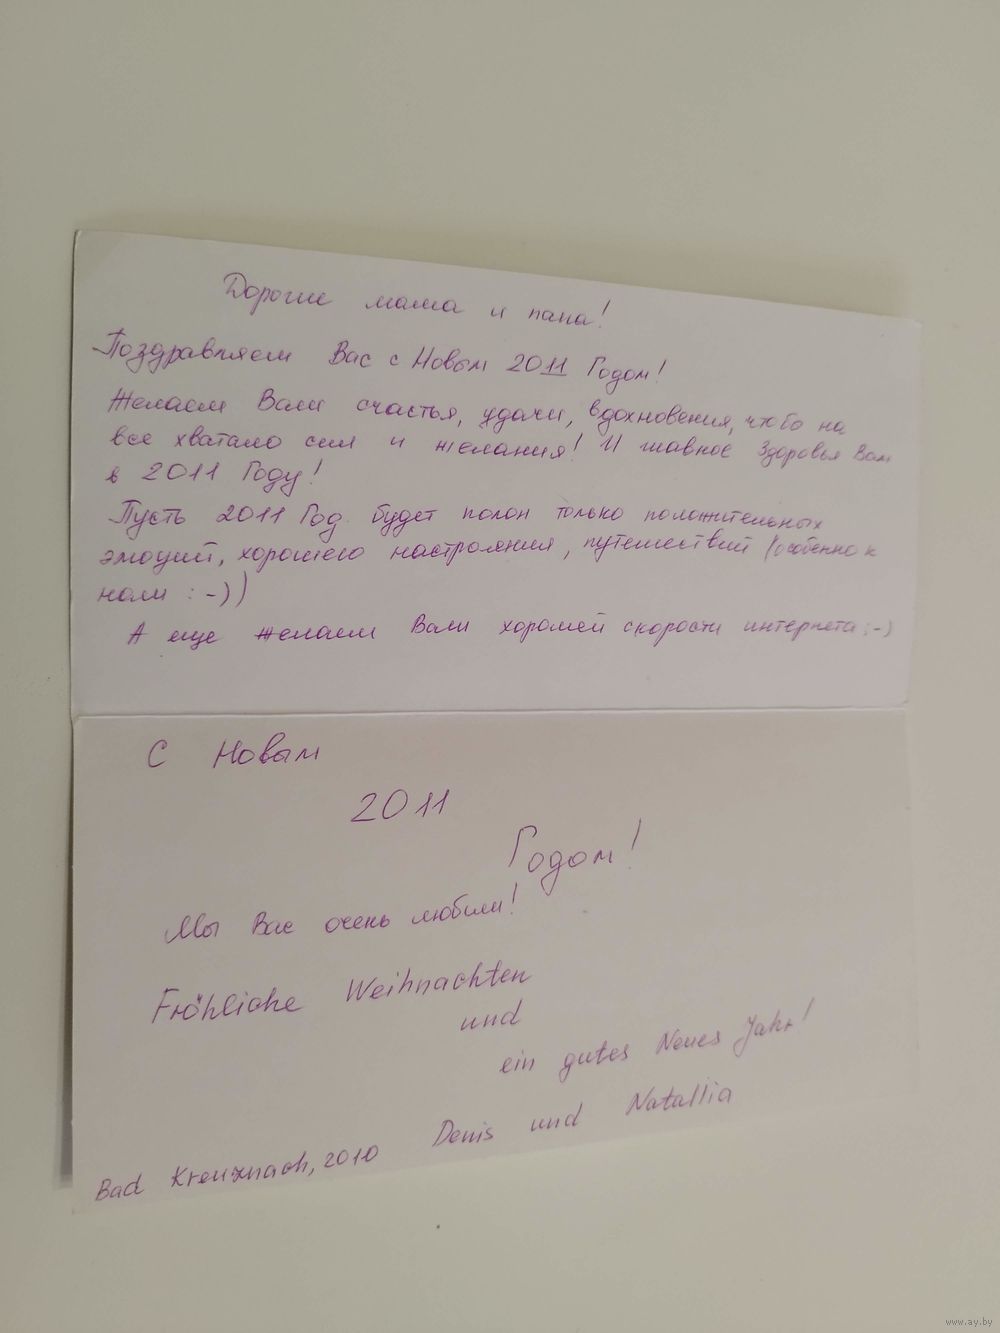 Дорогие мама и папа!
Поздравляем Вас с Новым 2011 Годом!
Желаем Вам счастья, удачи, вдохновения, чтобо на
все хватало сил и желания! И главное Здоровья Вам
в 2011 Году!
Пусть 2011 Год будет полон только положительных
эмоций, хорошего настроения, путешествий (особенно к
нам :-))
А еще желаем Вам хорошей скорости интернета :-)
С Новым
2011
Годом!
Мы Вас очень любим!
Fröhliche Weihnachten
und
ein gutes Neues Jahr!
Denis und Natallia
Bad Kreuznach, 2010
www.ay.by